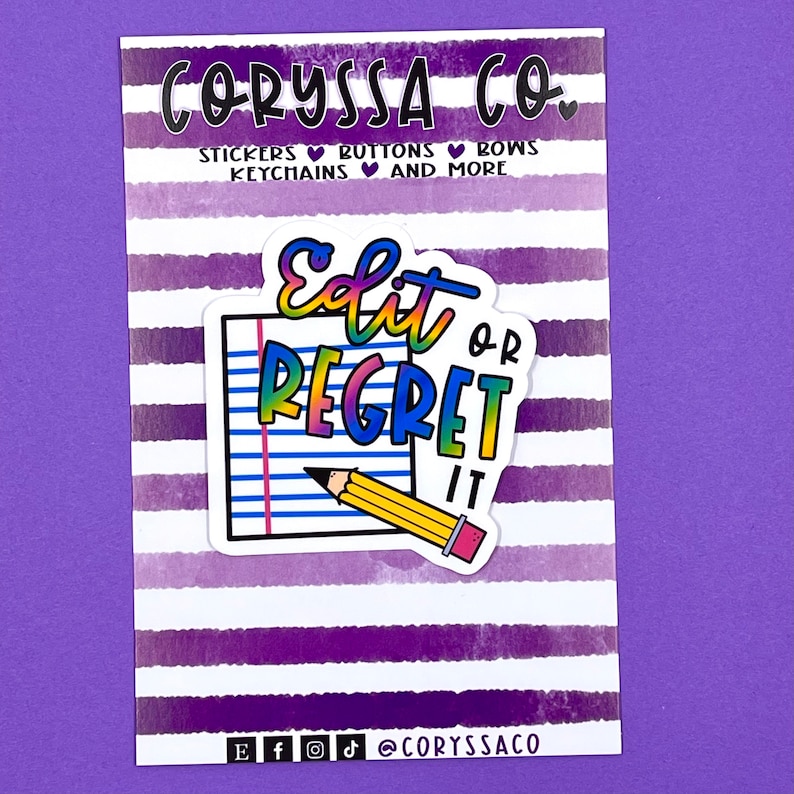 CORYSSA CO.
STICKERS BUTTONS BOWS
KEYCHAINS AND MORE
Edit OR
REGRET
IT
E f @CORYSSACO